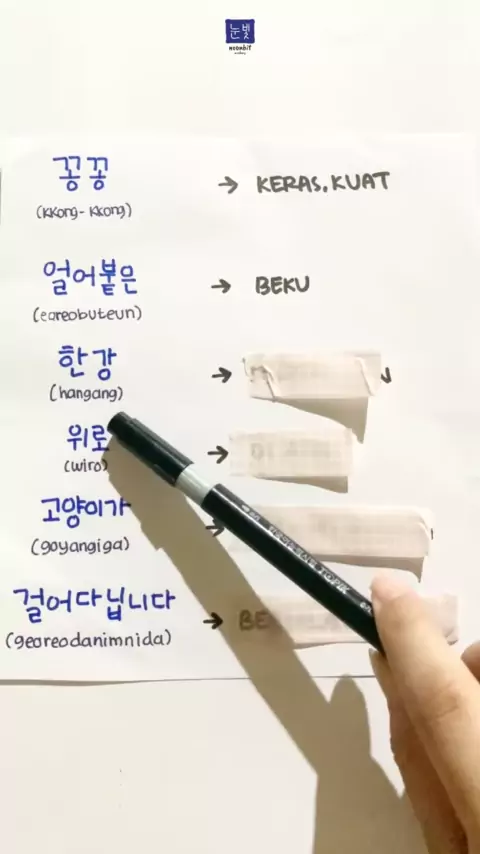 눈빛
noonbit
꽁꽁 → KERAS, KUAT
(kkong-kkong)
얼어붙은 → BEKU
(eoreobuteun)
한강 →
(hangang)
위로 →
(wiro)
고양이가 →
(goyangiga)
걸어다닙니다 → BE
(georeodanimnida)
TOPIK